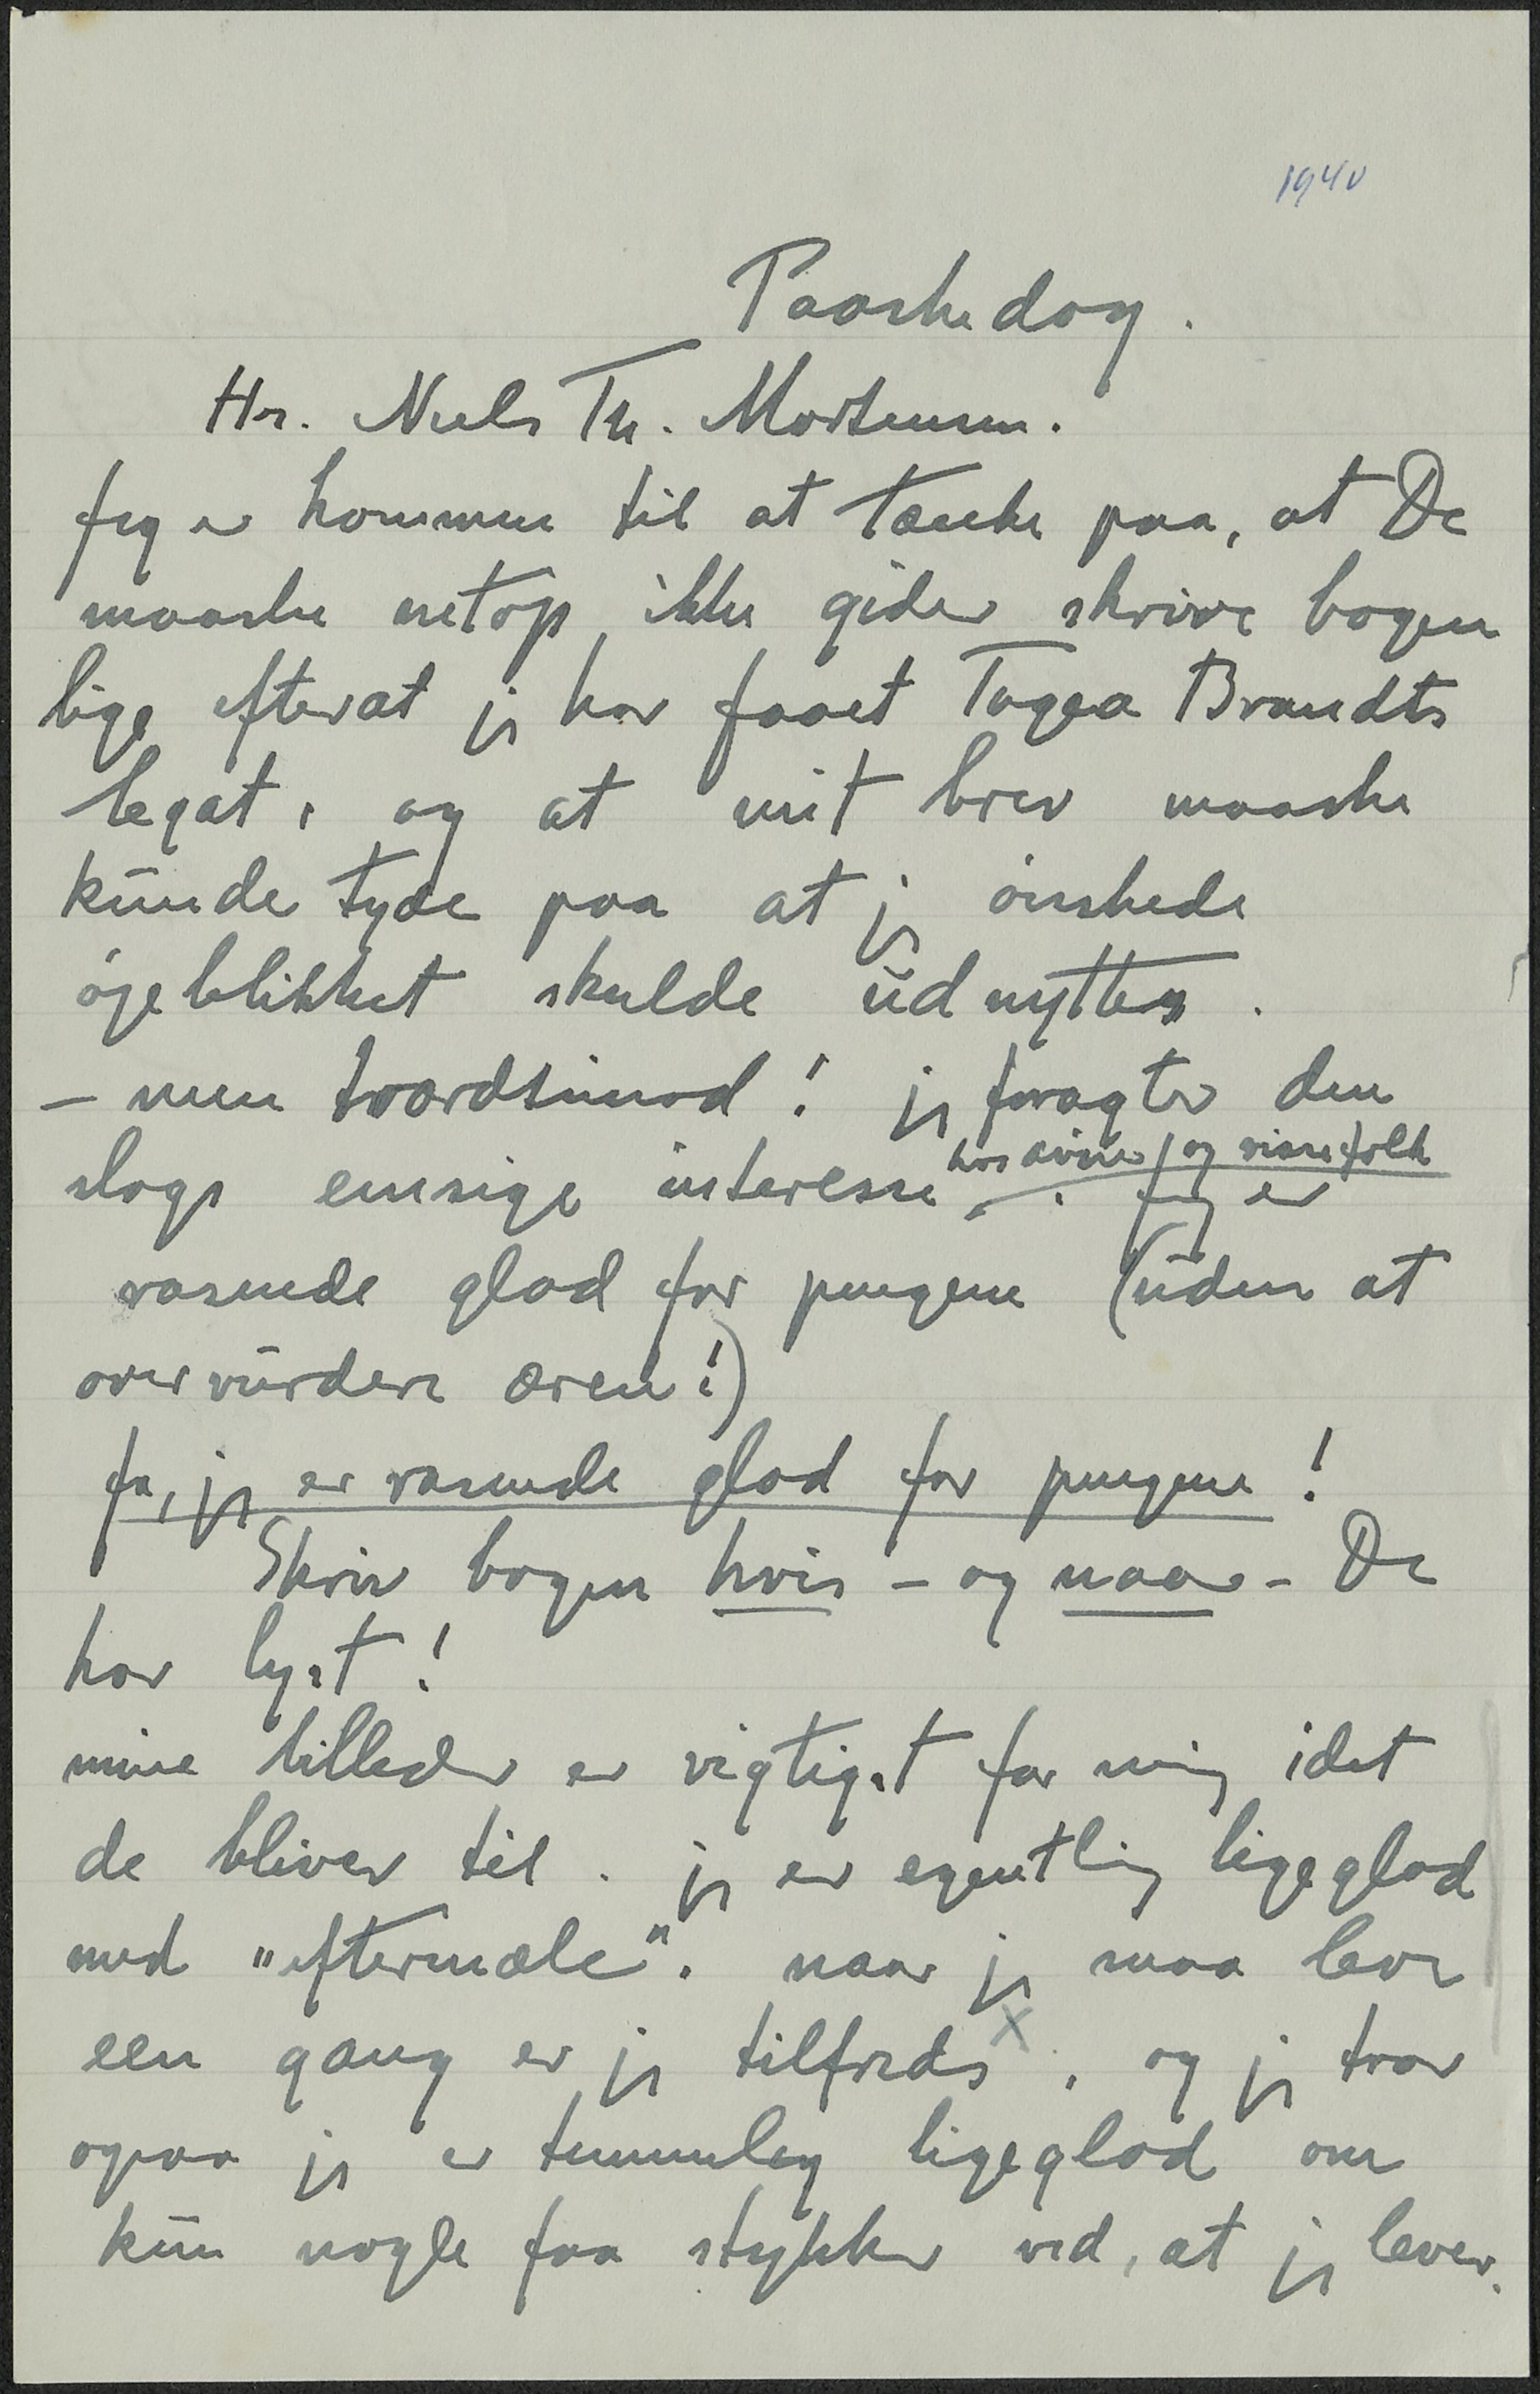 1940
Paaskedag.
Hr. Niels Th. Mortensen.
Jeg er kommen til at tænke paa, at De
maaske netop ikke gider skrive bogen
lige efterat jeg har faaet Tagea Brandts
legat, og at mit brev maaske
kunde tyde paa at jeg ønskede
øjeblikket skulde udnyttes.
- men tværdtimod! jeg foragter den
hos aviser og visse folk
slags emsige interesse. Jeg er
rasende glad for pengene (uden at
overvurdere æren!)
Ja, jeg er rasende glad for pengene!
Skriv bogen hvis - og naar - De
har lyst!
mine billeder er vigtigst for mig idet
de bliver til. jeg er egentlig ligeglad
med "eftermæle". naar jeg maa leve
een gang er jeg tilfreds x, og jeg tror
ogsaa jeg er temmelig ligeglad om
kun nogle faa stykker ved, at jeg lever.